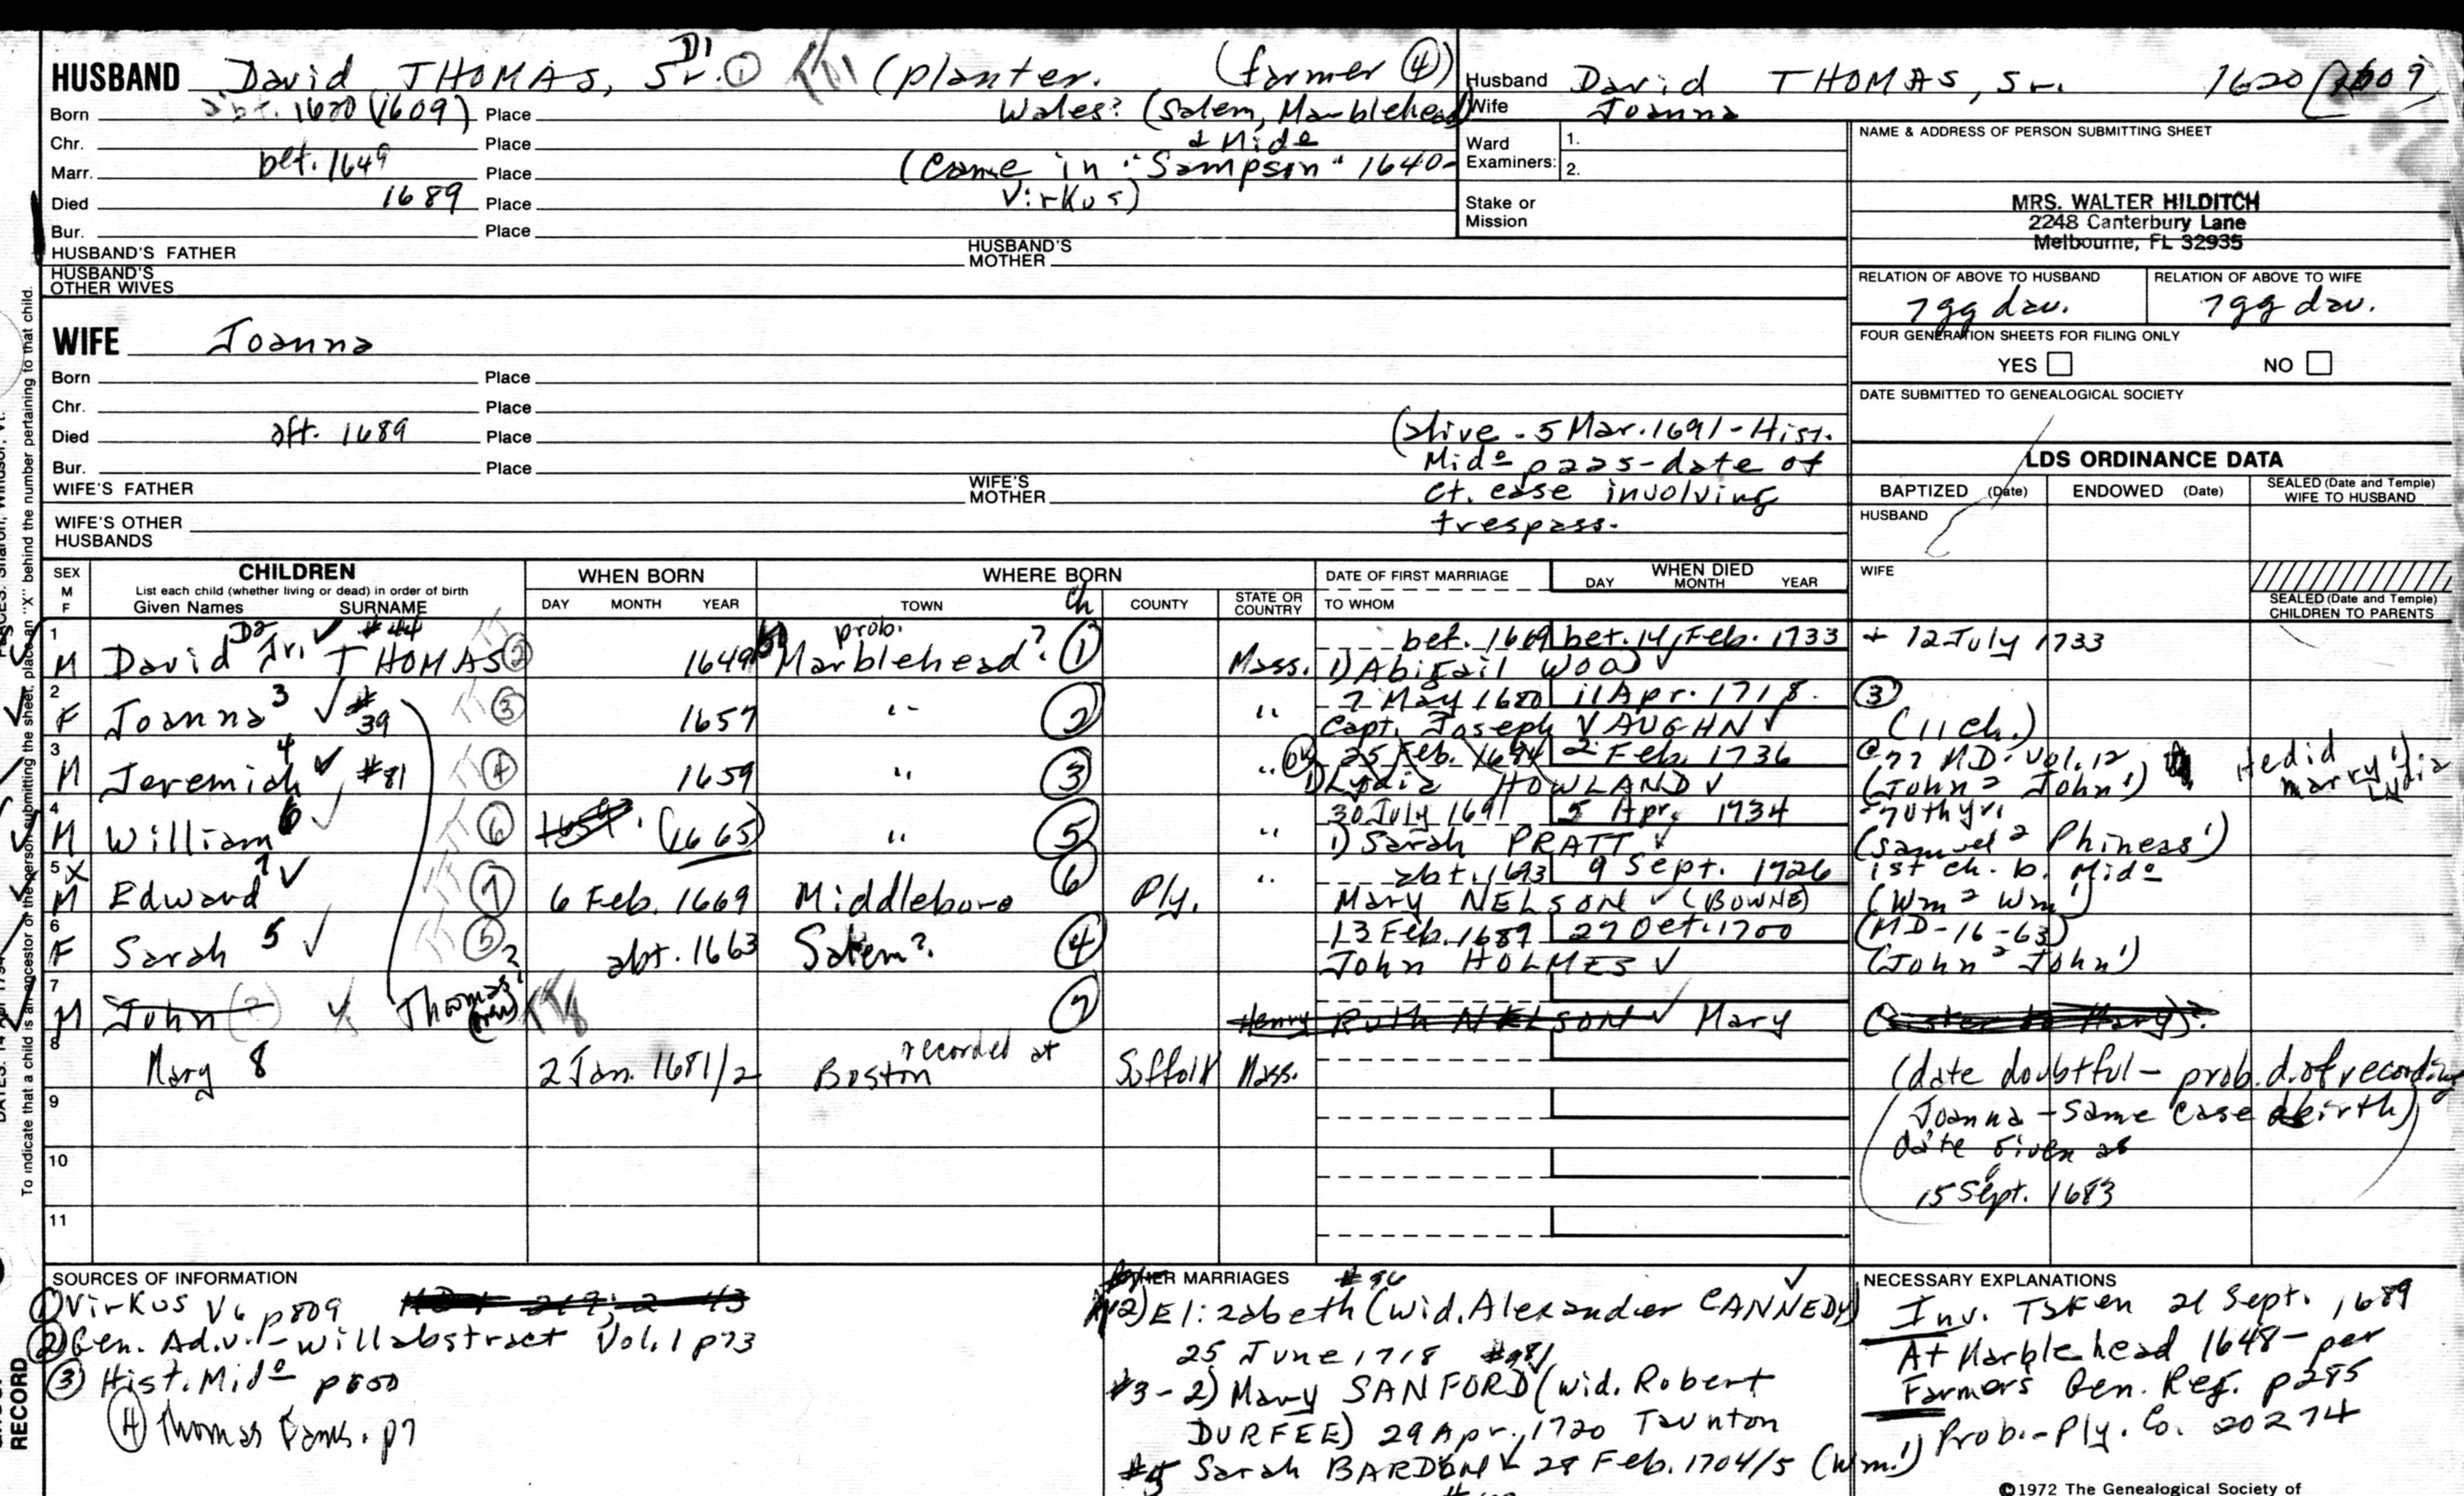 HUSBAND David THOMAS, Sr. D1 ① (planter. (farmer ④)
Born abt. 1620 (1609) Place Wales? (Salem, Marblehead
Chr. Place & Mido
Marr. bef. 1649 Place (Came in "Sampson" 1640-
Died 1689 Place Virkus)
Bur. Place
HUSBAND'S FATHER HUSBAND'S MOTHER
HUSBAND'S OTHER WIVES
Husband David THOMAS, Sr. 1620 (1609)
Wife Joanna
Ward Examiners: 1.
2.
Stake or Mission
NAME & ADDRESS OF PERSON SUBMITTING SHEET
MRS. WALTER HILDITCH
2248 Canterbury Lane
Melbourne, FL 32935
RELATION OF ABOVE TO HUSBAND RELATION OF ABOVE TO WIFE
7gg dau. 7gg dau.
FOUR GENERATION SHEETS FOR FILING ONLY
YES NO
DATE SUBMITTED TO GENEALOGICAL SOCIETY
WIFE Joanna
Born Place
Chr. Place
Died aft. 1689 Place (alive - 5 Mar. 1691 - Hist.
Bur. Place Mido p225 - date of
WIFE'S FATHER WIFE'S MOTHER ct. case involving
WIFE'S OTHER HUSBANDS trespass.
LDS ORDINANCE DATA
BAPTIZED (Date) ENDOWED (Date) SEALED (Date and Temple) WIFE TO HUSBAND
HUSBAND
WIFE
SEALED (Date and Temple) CHILDREN TO PARENTS
SEX M F CHILDREN
List each child (whether living or dead) in order of birth
Given Names SURNAME
WHEN BORN DAY MONTH YEAR
WHERE BORN TOWN Ch COUNTY STATE OR COUNTRY
DATE OF FIRST MARRIAGE TO WHOM
WHEN DIED DAY MONTH YEAR
1 D2 #44 prob. bef. 1669 bet. 14 Feb. 1733 + 12 July 1733
M David Jr. THOMAS ② 1649 Marblehead? ① Mass. 1) Abigail WOOD
2 7 May 1680 11 Apr. 1718. ③
F Joanna 3 #39 ③ 1657 " ② " Capt. Joseph VAUGHN (11 ch.)
3 25 Feb. 1684 2 Feb. 1736 @77 MD. Vol. 12, He did
M Jeremiah 4 #81 ④ 1659 " ③ " OK 1) Lydia HOWLAND (John² John¹) marry Lydia
4 30 July 1691 5 Apr. 1734 70th yr.
M William 6 ⑥ 1659. (1665) " ⑤ " 1) Sarah PRATT (Samuel² Phiness¹)
5 X abt. 1693 9 Sept. 1726 1st ch. b. Mido
M Edward 7 ⑦ 6 Feb. 1669 Middleboro ⑥ Ply. " Mary NELSON (BOWNE) (Wm² Wm¹)
6 13 Feb. 1689 27 Oct. 1700 (MD-16-63)
F Sarah 5 ⑤ abt. 1663 Salem? ④ John HOLMES (John² John¹)
7
M John (?) Thomas ⑦ Henry Ruth NELSON Mary (sister to Mary)?
8 Mary 8 2 Jan. 1681/2 recorded at Boston Suffolk Mass. (date doubtful - prob. d. of recording
9 Joanna - same case birth)
10 date given as
15 Sept. 1683
11
SOURCES OF INFORMATION
① Virkus V6 p809
② Gen. Ad. v.1 - will abstract Vol. 1 p73
③ Hist. Mido
④ Thomas p7
OTHER MARRIAGES #96
2) Elizabeth (wid. Alexander CANNEDY)
25 June 1718
#3 - 2) Mary SANFORD (wid. Robert
DURFEE) 29 Apr. 1720 Taunton
Sarah BARDEN 28 Feb. 1704/5 (Wm.¹)
NECESSARY EXPLANATIONS
Inv. Taken 21 Sept. 1689
At Marblehead 1648 - per
Farmers Gen. Reg. p285
Prob. - Ply. Co. 20274
©1972 The Genealogical Society of
To indicate that a child is an ancestor of the person submitting the sheet, place an "X" behind the number pertaining to that child.
RECORD